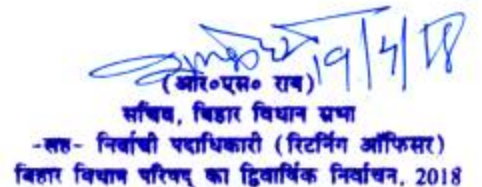 19/4/18
(आर०एस० राय)
सचिव, बिहार विधान सभा
-सह- निर्वाची पदाधिकारी (रिटर्निंग ऑफिसर)
बिहार विधान परिषद् का द्विवार्षिक निर्वाचन, 2018